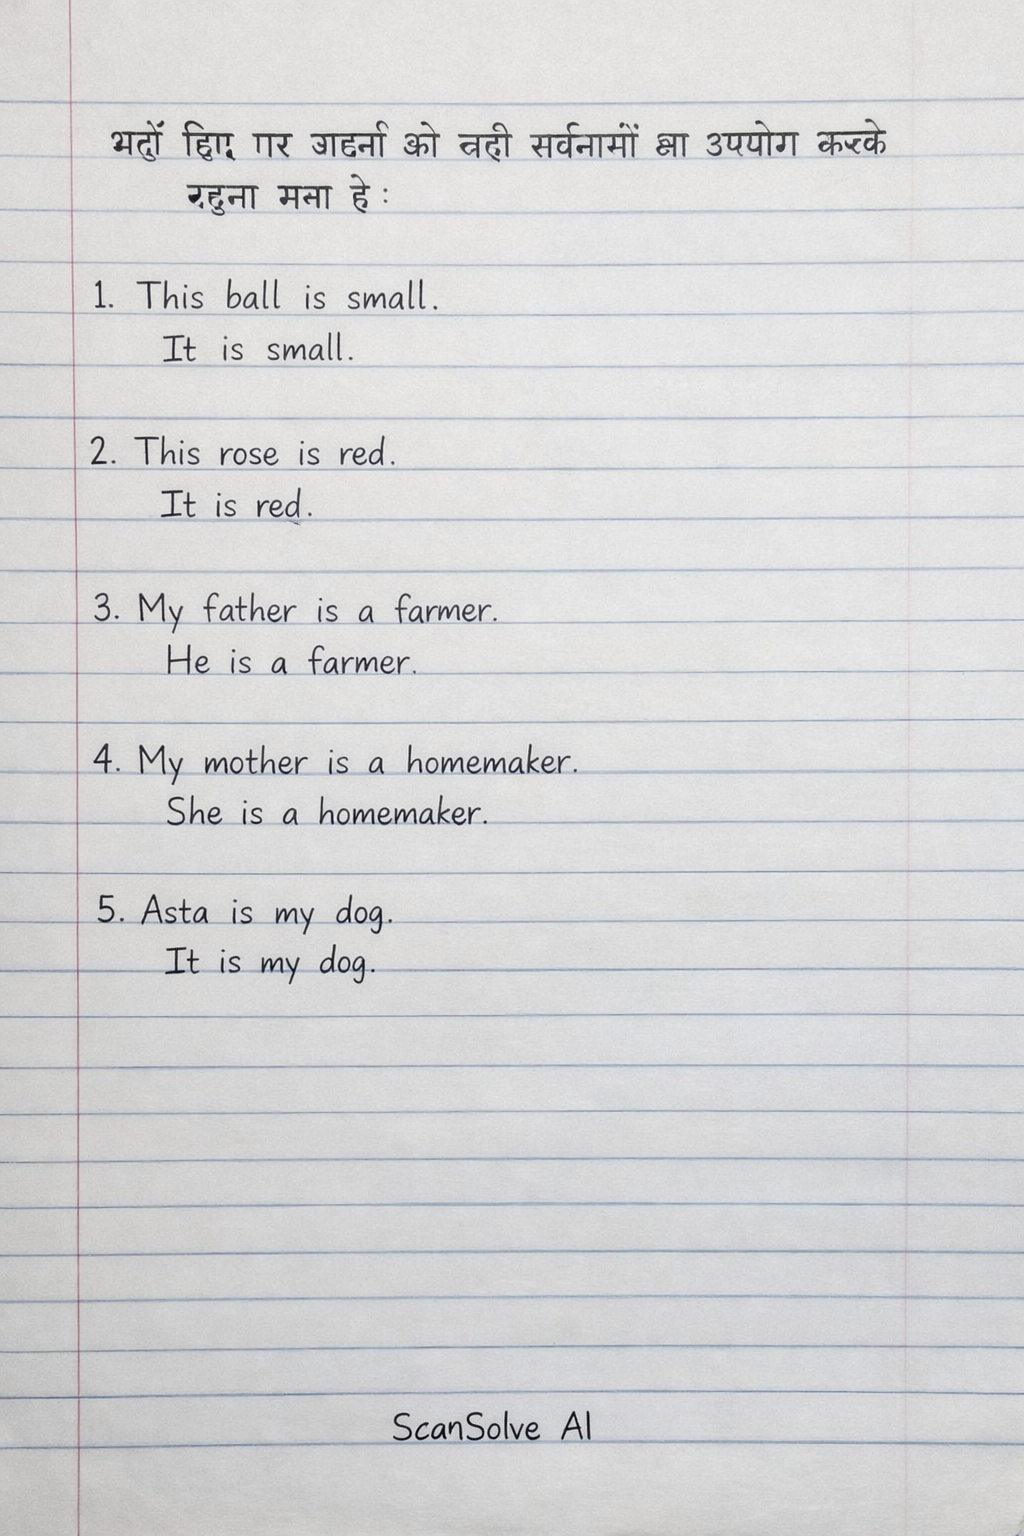 को सर्वनामों उपयोग करके
1. This ball is small.
It is small.
2. This rose is red.
It is red.
3. My father is a farmer.
He is a farmer.
4. My mother is a homemaker.
She is a homemaker.
5. Asta is my dog.
It is my dog.
ScanSolve AI